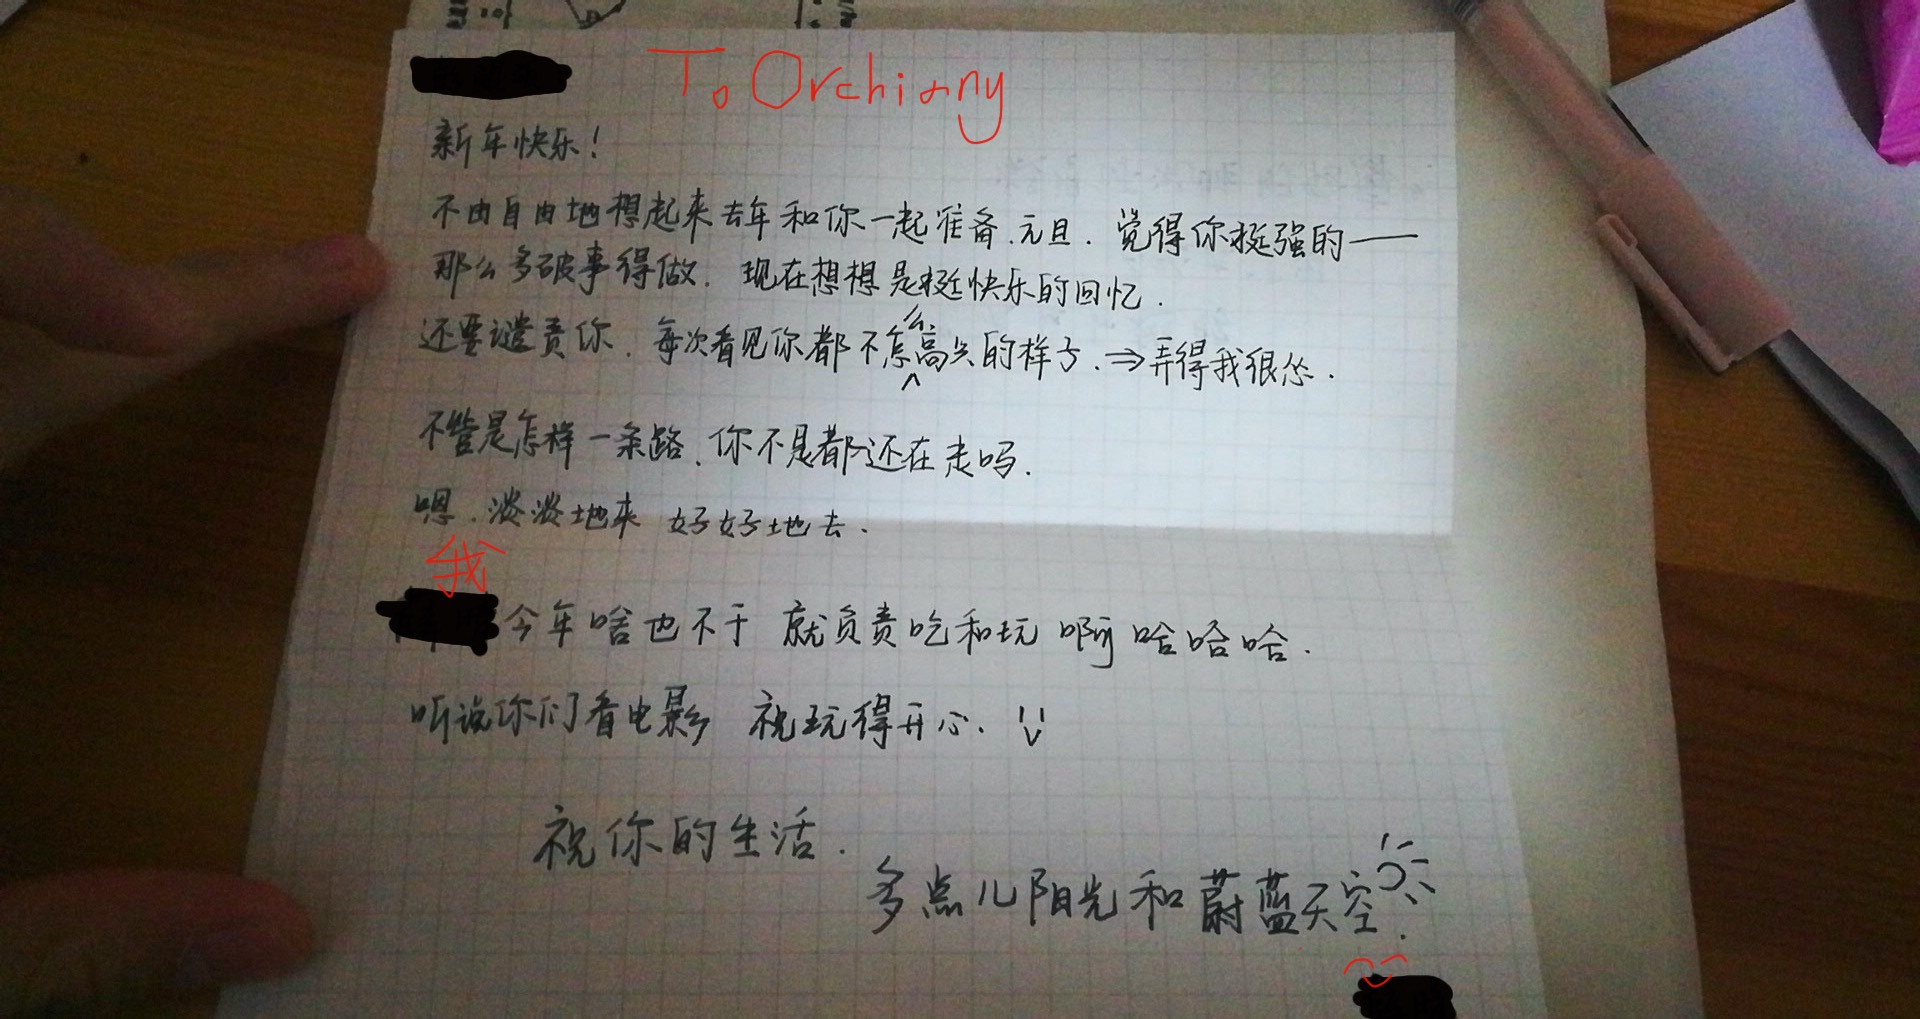 To Orchiany
新年快乐！
不由自由地想起来去年和你一起准备.元旦.觉得你挺强的——
那么多破事得做.现在想想是挺快乐的回忆.
还要谴责你.每次看见你都不怎么高兴的样子.⇒弄得我很怂.
不管是怎样一条路.你不是都还在走吗.
嗯.淡淡地来 好好地去.
我今年啥也不干 就负责吃和玩 啊哈哈哈.
听说你们看电影 祝玩得开心.
祝你的生活.
多点儿阳光和蔚蓝天空.